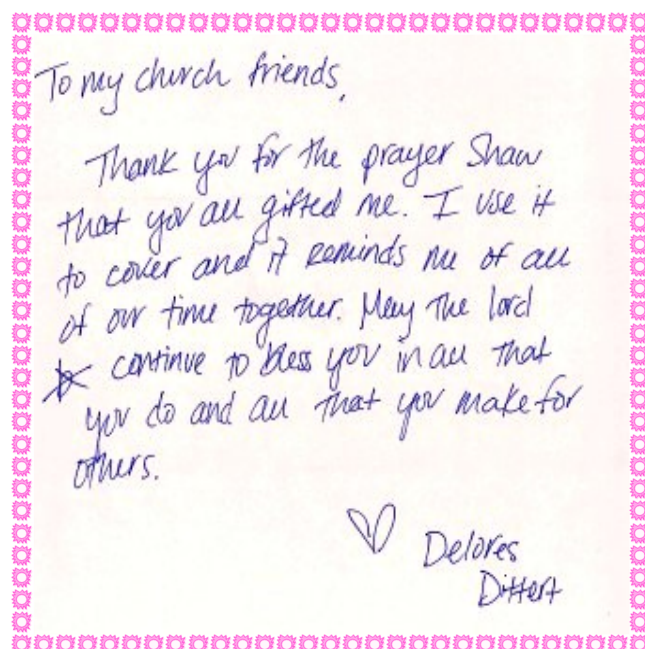 To my church friends,
Thank you for the prayer Shaw
that you all gifted me. I use it
to cover and it reminds me of all
of our time together. May the lord
continue to bless you in all that
you do and all that you make for
others.
Delores
Dittert